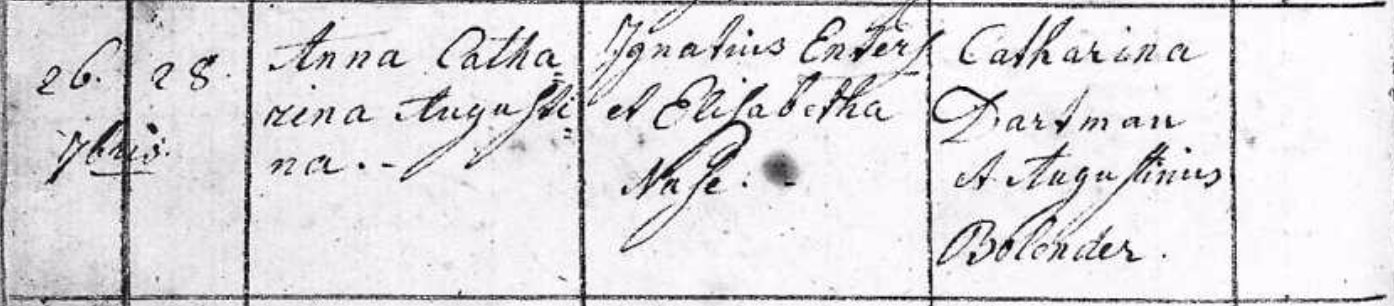 26. 28.
7bris.
Anna Catha=
rina Augusti=
na. -
Ignatius Enters
et Elisabetha
Nase. -
Catharina
Dartman
et Augustinus
Bolender.